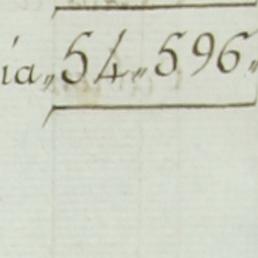 ia„ 54„596„